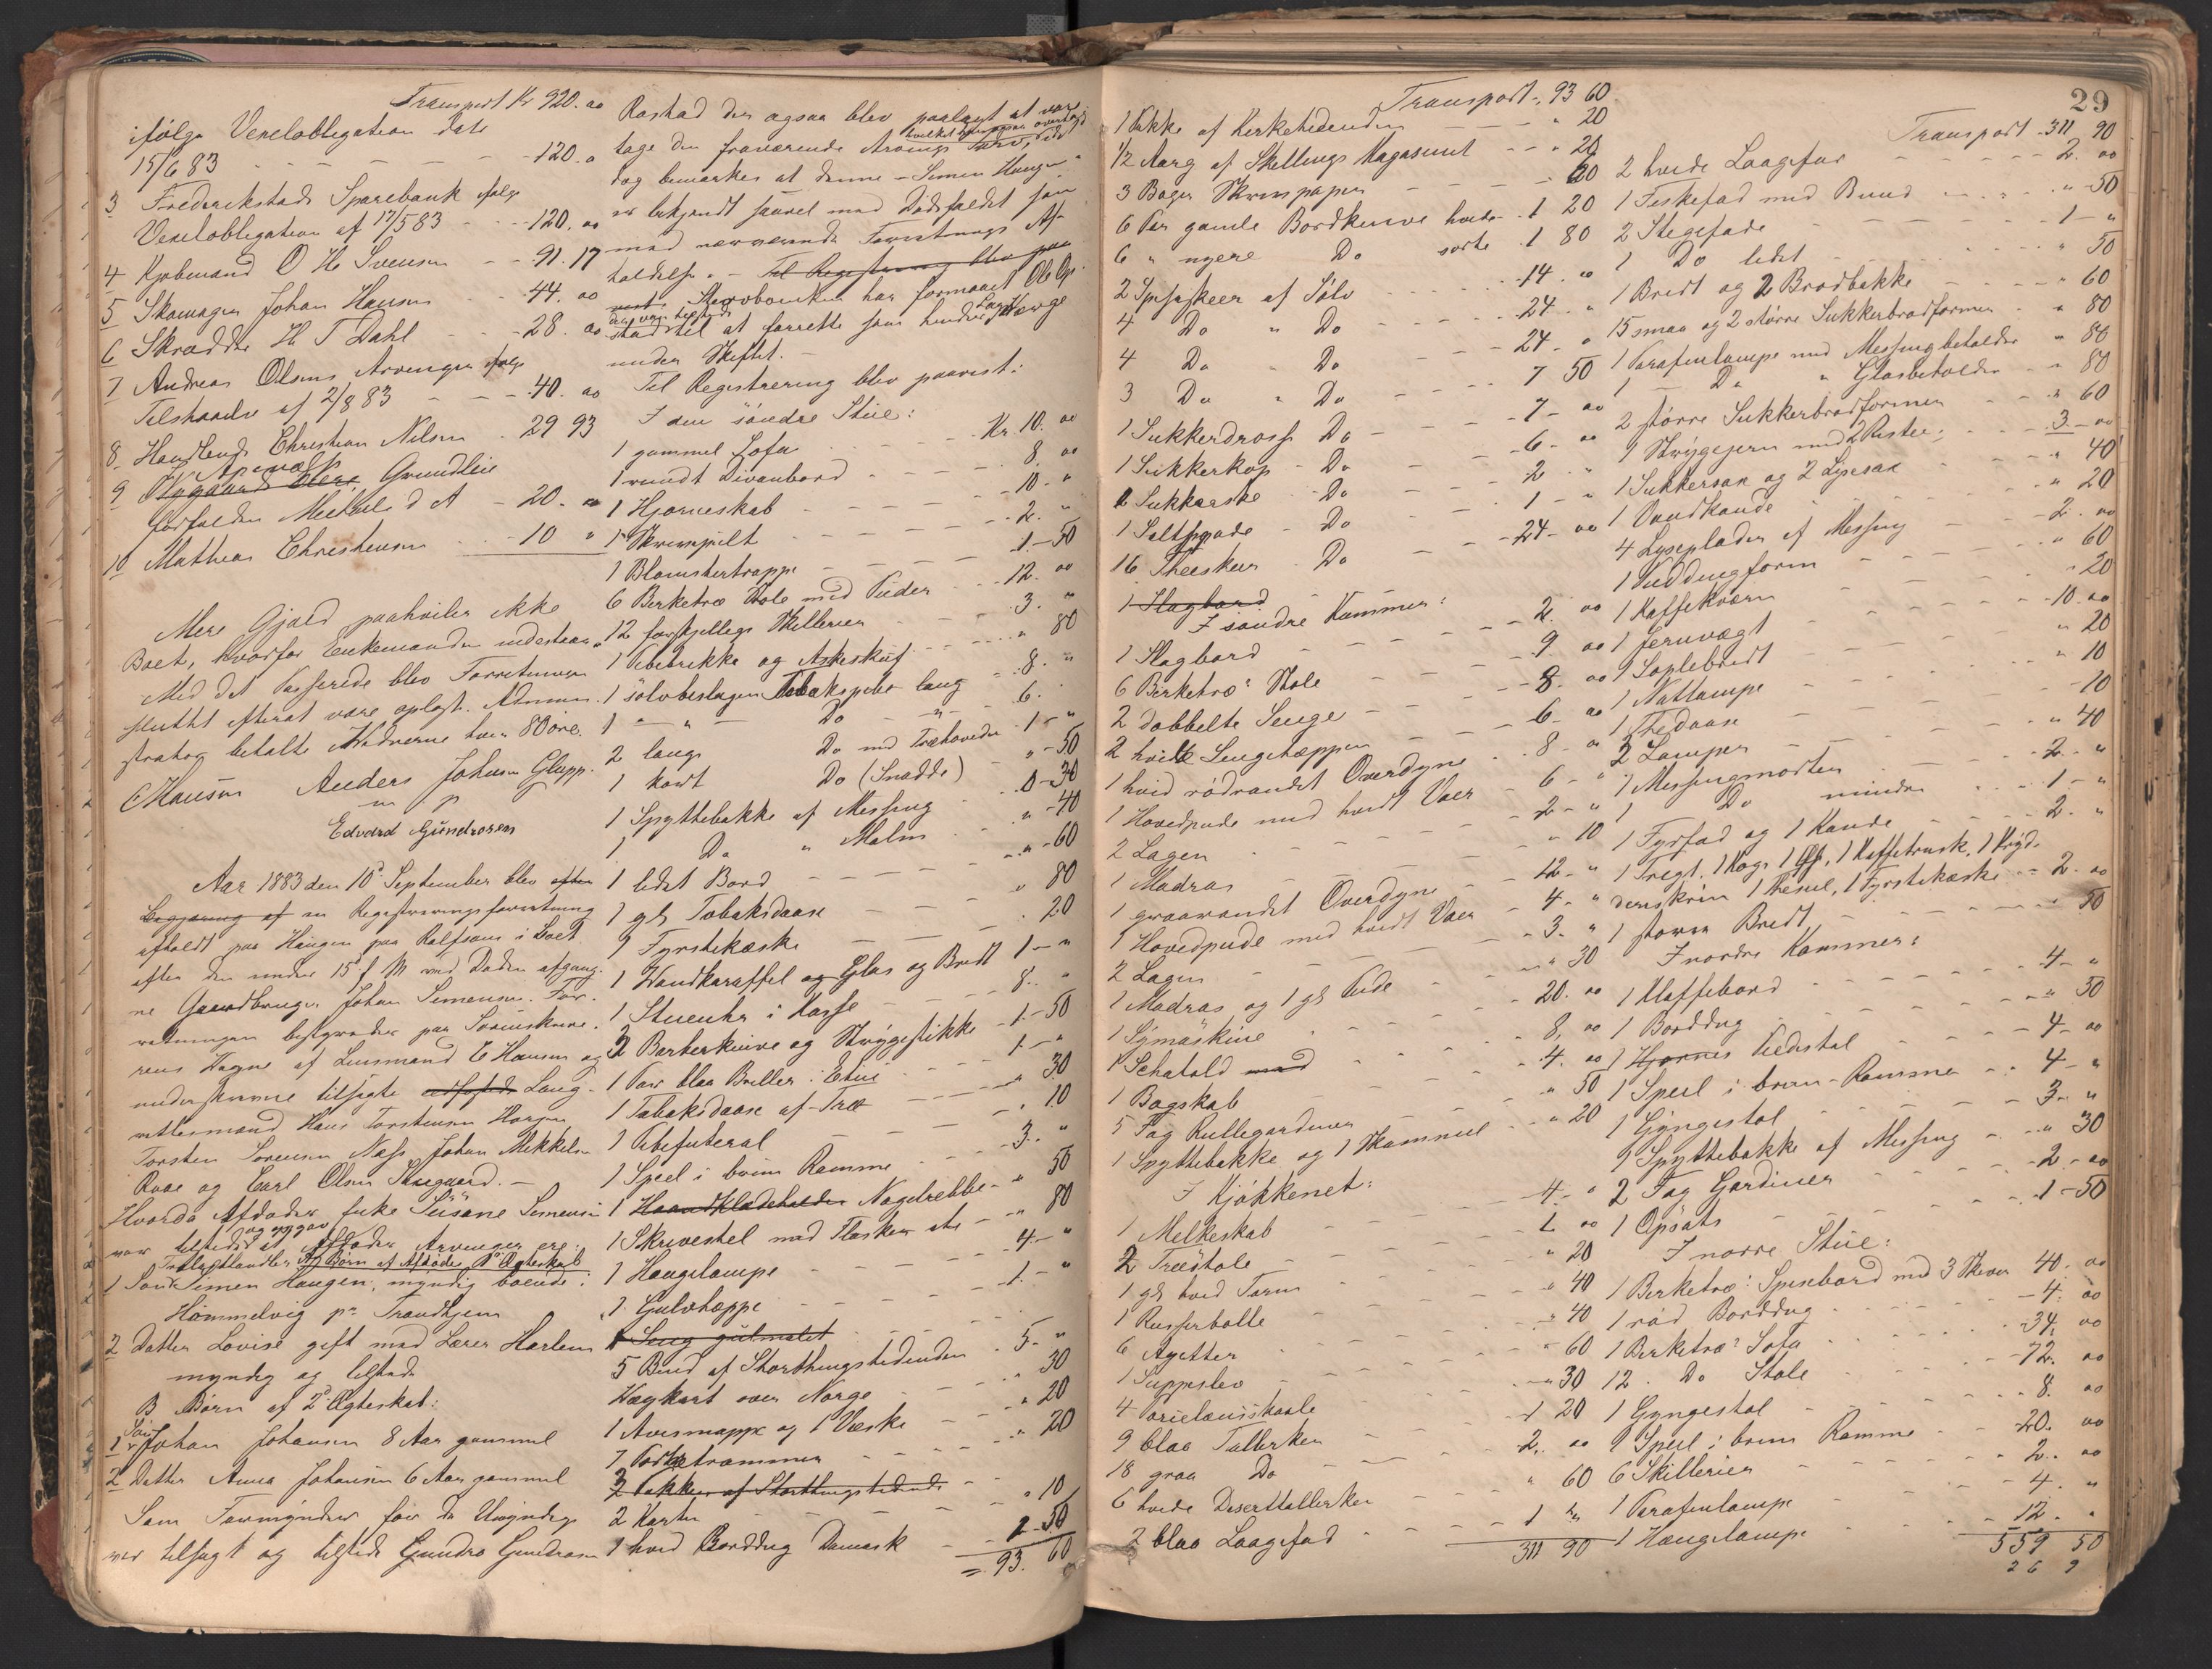 Transport Kr 920. 00
ifølge Vexelobligation dat
15/6 83 - - - - - 120. 0
3 Frederikstads Sparebank ifølge
Vexelobligation af 17/5 83 - - 120. 00
4 Kjøbmand O H Svensen - - 91. 17
5 Skomager Johan Hansen - - 44. 00
6 Skrædder H T Dahl - - - 28. 00
7 Andreas Olsens Arvinger ifølge
Tilstaaelse af 2/8 83 - - - 40. 00
8 Handlende Christian Nilsen - 29 93
9 Grundleie
forfalden Mikkeli d A - 20. 00
10 Mathias Christensen - - 10 "
Mere Gjæld paahviler ikke
Boet, hvorfor Enkemanden indestaar.
Med det Passerede blev Forretningen
sluttet efterat være oplæst. Admini-
strator betalte Vidnerne hver 80 øre.
E Hansen Anders Johnsen Glupp.
m p
Edvard Gundrosen
Aar 1883 den 10de September blev efter
Begjæring af en Registreringsforretning
afholdt paa Haugen paa Rolfsøen i Boet
efter den under 15 f M ved Døden afgang-
ne Gaardbruger Johan Simensen. For-
retningen bestyredes paa Sorenskrive-
rens Vegne af Lensmand E Hansen og
understemme tilsagte Laug-
rettesmænd Hans Torstensen Haugen
Torsten Sørensen Næss, Johan Mikkelsen
Roae og Carl Olsen Skogaard. -
Hvorda Afdødes enke Susane Simensen
var tilstede og opgav at Afdødes Arvinger ere:
A Børn af Afdødes 1ste Ægteskab
1 Søn Simen Haugen, myndig boende i
Hommelvig pr Trondhjem
2 Datter Lovise gift med Lærer Harlem
myndig og tilstede
B Børn af 2det Ægteskab:
1 Søn Johan Johansen 8 Aar gammel
2 Datter Anna Johansen 6 Aar gammel
Som Formynder for de Umyndige
var tilsagt og tilstede Gundro Gundrosen
Rostad der ogsaa blev paalagt at vare
tage den fraværende Arvings Tarv, hvilket han ogsaa overtog
dog bemærkes at denne - Simen Haugen -
er bekjendt saavel med Dødsfaldet som
med nærværende Forretnings Af-
holdelse. - Til Registrering blev paa
vist: Stervboenken har formaaet Ole Ol.
stad der var tilstede til at forrette som hendes Laugværge
under Skiftet. -
Til Registrering blev paavist:
I den søndre Stue:
1 gammel Sofa - - - Kr. 10. 00
1 rundt Divanbord - - - 8. 00
1 Hjørneskab - - - 10. "
1 Skrivepult - - - 2. "
1 Blomstertrappe - - - 1. - 50
6 Berketræ Stole med Puder - - 12. 00
12 forskjellige Skillerier - - 3. "
1 Pibebrikke og Askeskuf - - " 80
1 sølvbeslagen Tobakspibe lang - 8. "
1 " - Do - " - 6. "
2 lange Do med Træhoveder 1 - "
1 kort Do (Snadde) " - 50
1 Spyttebakke af Messing - 0 - 30
1 Do " Malm " - 40
1 lidet Bord - - - " - 60
1 gl Tobaksdaase - - - " 80
1 Fyrstikæske - - - " 20
1 Vandkaraffel og Glas og Bredt 1 - "
1 Stueuhr i Kasse - - - 8. "
2 Barberknive og Strygestikke - 1 - 50
1 Par blaa Briller i Etui - - 1. - "
1 Tobaksdaase af Træ - - - " 30
1 Pibefuteral - - - " 10
1 Speil i brun Ramme - - - 3. "
1 Haandklædeholder Nøgelrække - " 50
1 Skrivestel med Flasker etc - " 80
1 Hængelampe - - - 4. - "
1 Gulvteppe - - - 1. - "
1 Seng gulmalet
5 Bind af Storthingstidenden - 5. "
Vægkart over Norge - - - " 30
1 Avismappe og 1 Væske - - " 20
7 Portrætrammer - - - " 20
2 Pakker af Storthingstidende
2 Karter - - - " 10
1 hvid Borddug Damask - - 2 - 50
= 93. 60
Transport -. 93 60
1 Pakke af Kirketidenden - - - " 20
1/2 Aarg af Skillings Magasinet - - - " 20
3 Bøger Skrivepapir - - - 60
6 Par gamle Bordknive hvide - 1 20
6 " nyere Do sorte - 1 80
2 Spiseskeer af Sølv - - 14. "
4 Do " Do - - - 24. "
4 Do " Do - - 24. "
3 Do " Do - - - 7 50
1 Sukkerdross Do - - - 7 - 00
1 Sukkerkop - Do - - - 6 - 00
1 Sukkerske - Do - - - 2 "
1 Saltspade - Do - - - 1 - "
16 Theskeer - Do - - - 24 - 00
1 Slagbord
I søndre Kammer:
1 Slagbord - - - 2. 00
6 Birketræs Stole - - - 9 00
2 dobbelte Senge - - - 8 - 00
2 hvide Sengetæpper - - - 6 - 00
1 hvid rødrandet Overdyne - 8 - "
1 Hovedpude med hvidt Vaer - 6 - "
2 Lagen - - - 2 - "
1 Madras - - - " 10
1 graarandet Overdyne - - 12. - "
1 Hovedpude med hvidt Vaer - 4. "
2 Lagen - - - 3. "
1 Madras og 1 gl Pude - - - " 30
1 Symaskine - - - 20. 00
1 Schatold med - - - 8. 00
1 Bogskab - - - 4. 00
5 Fag Rullegardiner - - - " 50
1 Spyttebakke og 1 Skammel - - " 20
I Kjøkkenet:
1 Melkeskab - - - 4. - "
2 Træstole - - - 1. 00
1 gl hvid Terrin - - - " 20
1 Punsebolle - - - " 40
6 Asjetter - - - " 40
1 Suppeslev - - - " 60
4 Porcelænsskaale - - - " 30
9 blaa Tallerken - - - 1 20
18 graa Do - - - 2. 00
6 hvide Deserttallerken - - - " 60
2 blaa Laagefad - - - 1 "
311 90
29
Transport - 311 90
2 hvide Laagefar - - - 2. 00
1 Fiskefad med Bund - - - " 50
2 Stegefade - - - 1 - "
1 Do lidet - - - " 50
1 Bredt og 2 Brødbakke - - - " 60
15 smaa og 2 større Sukkerbrødformer " 80
1 Parafinlampe med Messingbeholder " 80
1 Do " Glasbeholder - " 80
2 større Sukkerbrødformer - - " 60
1 Strygejern med 2 Rister - - - 3 - 00
1 Sukkersax og 2 Lysesax - - - " 40
1 Vandkande - - - " 20
4 Lyseplader af Messing - - 2. 00
1 Puddingform - - - " 60
1 Kaffekværn - - - " 20
1 Jernvægt - - - 10. 00
1 Saplebredt - - - " 20
1 Natlampe - - - " 10
1 Thedaase - - - - 10
2 Lamper - - - " 40
1 Messingmorter - - - 2. "
1 Do mindre - - - 1 - "
1 Fyrfad og 1 Kande - - - 2. "
1 Tregt, 1 Kage, 1 Øse, 1 Kaffetragt, 1 Kryd-
derskrin 1 Resul, 1 Fyrstikæske - - 2. 00
1 større Bredt - - - 50
I nordre Kammer:
1 Klaffebord - - - 4 - "
1 Borddug - - - " 50
1 Hjørnes Piedestal - - - 4 - 00
1 Speil i brun - Ramme - - 4 - "
1 Gyngestol - - - 3 - "
1 Spyttebakke af Messing - - " 30
2 Fag Gardiner - - - 2 - 00
1 Opsats - - - 1 - 50
I norre Stue:
1 Berketræs Spisebord med 3 Skiver 40. 00
1 rød Borddug - - - 4. 00
1 Birketræs Sofa - - - 34. 00
12 Do Stole - - - 72. 00
1 Gyngestol - - - 8. 00
1 Speil i brun Ramme - - 20. 00
6 Skillerier - - - 2. 00
1 Parafinlampe - - - 4. "
1 Hængelampe - - - 12. "
559 50
26 9